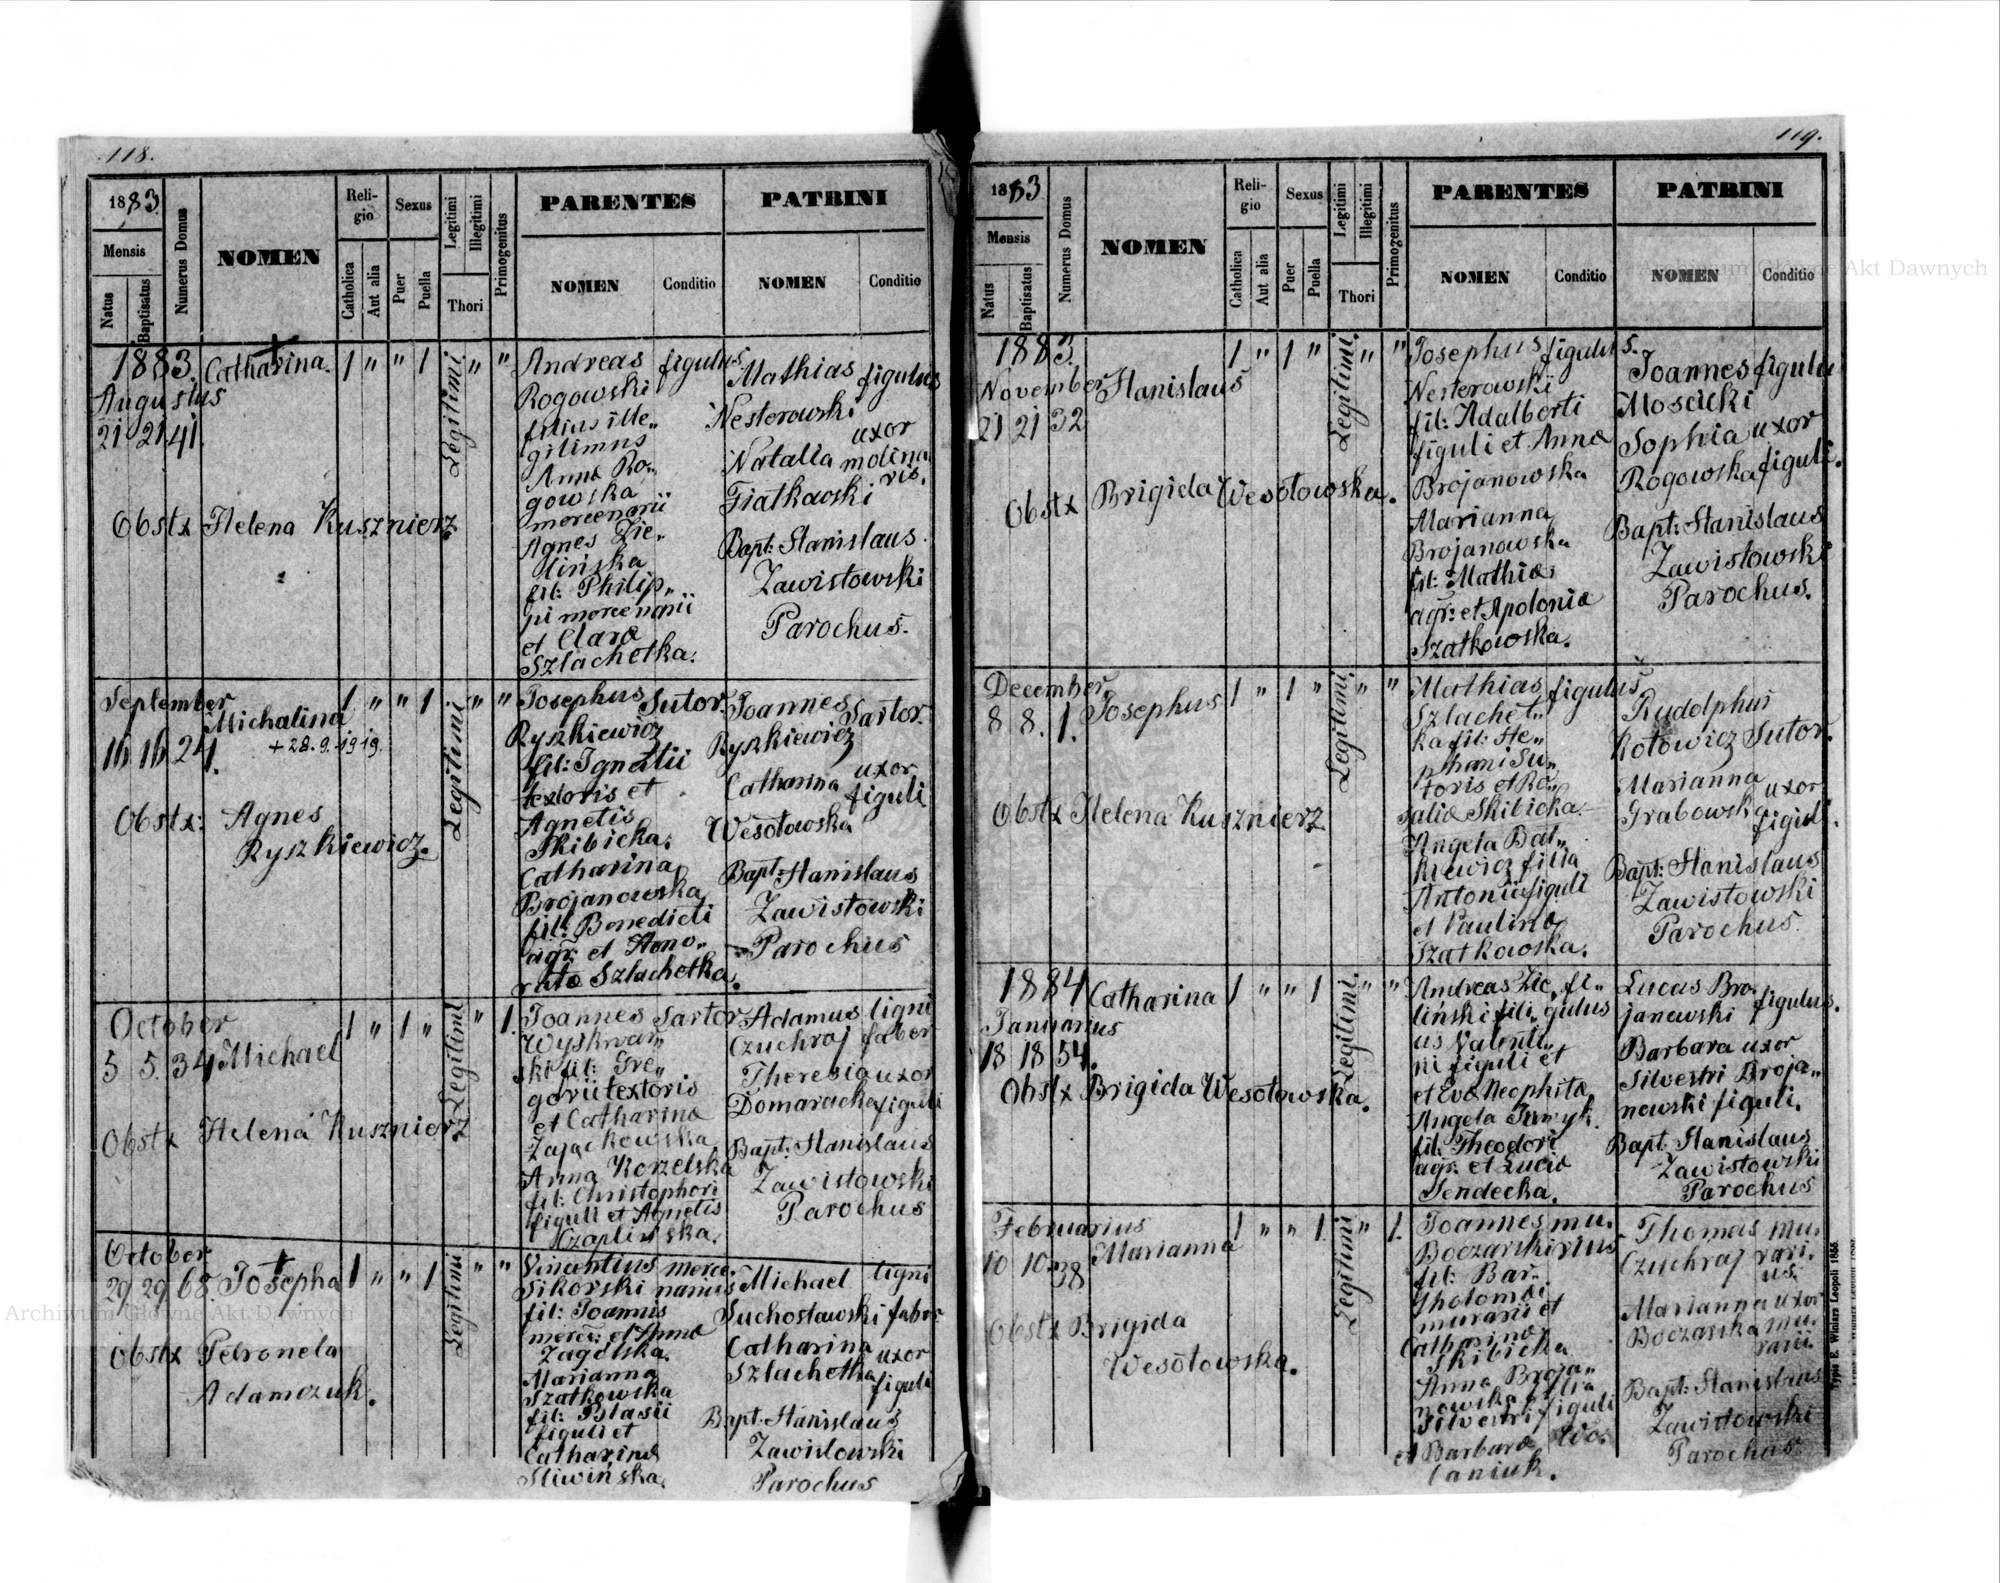 118.
1883
Mensis
Natus
Baptisatus
Numerus Domus
NOMEN
Religio
Catholica
Aut alia
Sexus
Puer
Puella
Legitimi
Illegitimi
Thori
Primogenitus
PARENTES
NOMEN
Conditio
PATRINI
NOMEN
Conditio
1883.
Augustus
21 21 41
Catharina.
1 " " 1
Legitimi
" "
Obstx Helena Kusznierz
Andreas figulus.
Rogowski
filius ille„
gitimus
Anna Ro„
gowska
mercenarii
Agnes Zie„
lińska
fil: Philip„
pi mercenarii
et Clara
Szlachetka.
Mathias figulus
Nesterowski
uxor
Natalia molina
ris.
Fiatkowski
Bapt: Stanislaus
Zawistowski
Parochus.
September
16 16 24.
Michalina
+ 28.9.1919.
1 " " 1
Legitimi
" "
Obstx: Agnes
Ryszkiewicz.
Josephus Sutor.
Ryszkiewicz
fil: Ignatii
textoris et
Agnetis
Skibicka.
Catharina
Brojanowska
fil: Benedicti
agr: et Hono„
rata Szlachetka.
Joannes Sartor.
Ryszkiewicz
Catharina uxor
figuli
Wesołowska
Bapt: Stanislaus
Zawistowski
Parochus
October
5 5. 34 Michael
1 " 1 "
Legitimi
" 1.
Obstx Helena Kusznierz
Joannes Sartor
Wyskwar„
ski fil: Gre„
gorii textoris
et Catharina
Zajączkowska
Anna Korzelska
fil: Christophori
figuli et Agnetis
Czaplińska.
Adamus ligni
Czuchraj faber
Theresia uxor
Domaracka figuli
Bapt: Stanislaus
Zawistowski
Parochus
October
29 29 68. Josepha
1 " " 1
Legitimi
" "
Obstx Petronela
Adamczuk.
Vincentius merce„
Sikorski narius
fil: Joannis
merc: et Anna
Zagolska.
Marianna
Szatkowska
fil: Blasii
figuli et
Catharina
Sliwińska.
Michael ligni
Suchosławski faber
Catharina uxor
Szlachetka figuli
Bapt: Stanislaus
Zawistowski
Parochus
119.
1883
Mensis
Natus
Baptisatus
Numerus Domus
NOMEN
Religio
Catholica
Aut alia
Sexus
Puer
Puella
Legitimi
Illegitimi
Thori
Primogenitus
PARENTES
NOMEN
Conditio
PATRINI
NOMEN
Conditio
1883.
November
21 21 32
Stanislaus
1 " 1 "
Legitimi.
" "
Obstx Brigida Wesołowska.
Josephus figulus.
Nesterowski
fil: Adalberti
figuli et Anna
Brojanowska
Marianna
Brojanowska
fil: Mathia
agr: et Apolonia
Szatkowska.
Joannes figulus
Moscicki
Sophia uxor
Rogowska figuli.
Bapt: Stanislaus
Zawistowski
Parochus.
December.
8 8. 1. Josephus
1 " 1 "
Legitimi
" "
Obstx Helena Kusznierz
Mathias figulus
Szlachet„
ka fil: Ste„
phani Su„
toris et Ro„
salia Skibicka.
Angela Bał„
kiewicz filia
Antonii figuli
et Paulina
Szatkowska.
Rudolphus
Kotowicz Sutor.
Marianna uxor
Grabowsk figuli.
Bapt: Stanislaus
Zawistowski
Parochus.
1884
Januarius
18 18 54.
Catharina
1 " " 1
Legitimi.
" "
Obstx Brigida Wesołowska.
Andreas Zie„ fi„
liński fili„ gulus
us Valenti„
ni figuli et
et Eva Neophita
Angela
fil: Theodori
agr: et Lucia
Sendecka.
Lucas Bro„ figulus.
janowski
Barbara uxor
Silvestri Broja„
nowski figuli.
Bapt: Stanislaus
Zawistowski
Parochus
Februarius
10 10 38
Marianna
1 " " 1
Legitimi
" 1.
Obstx Brigida
Wesołowska.
Joannes mu„
Boczarski rarius
fil: Bar„
tholomæi
murarii et
Catharina
Skibicka
Anna Broja„
nowska filia
Silvestri figuli
et Barbara Wo„
laniuk.
Thomas mu„
Czuchraj rari„
us.
Marianna uxor
Boczarska mu„
rarii.
Bapt: Stanislaus
Zawistowski
Parochus
Typis E. Winiarz Leopoli 1855.
Archiwum Główne Akt Dawnych
Archiwum Główne Akt Dawnych